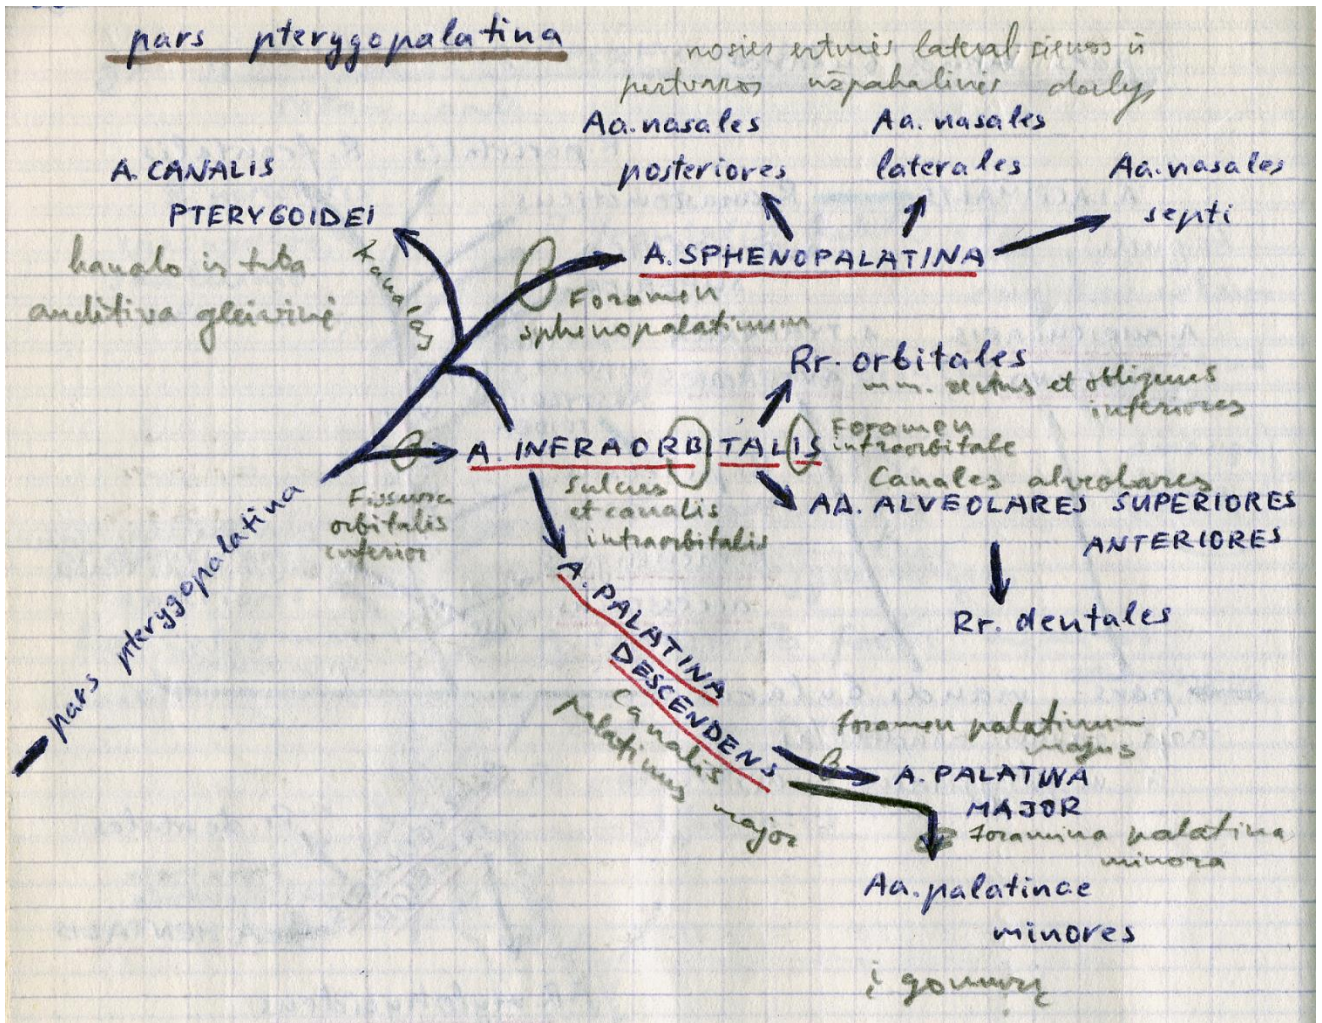 pars pterygopalatina
nosies ertmės lateral sienos ir
pertvaros užpakalinės dalys
Aa. nasales
posteriores
Aa. nasales
laterales
Aa. nasales
septi
A. CANALIS
PTERYGOIDEI
kanalo ir tuba
auditiva gleivinė
Kanalas
A. SPHENOPALATINA
Foramen
sphenopalatinum
Rr. orbitales
mm. rectus et obliquus
inferiores
A. INFRAORBITALIS
Foramen
infraorbitale
Fissura
orbitalis
inferior
Sulcus
et canalis
infraorbitalis
Canales alveolares
AA. ALVEOLARES SUPERIORES
ANTERIORES
Rr. dentales
pars pterygopalatina
A. PALATINA
DESCENDENS
Canalis
palatinus major
Foramen palatinum
majus
A. PALATINA
MAJOR
Foramina palatina
minora
Aa. palatinae
minores
į gomurį